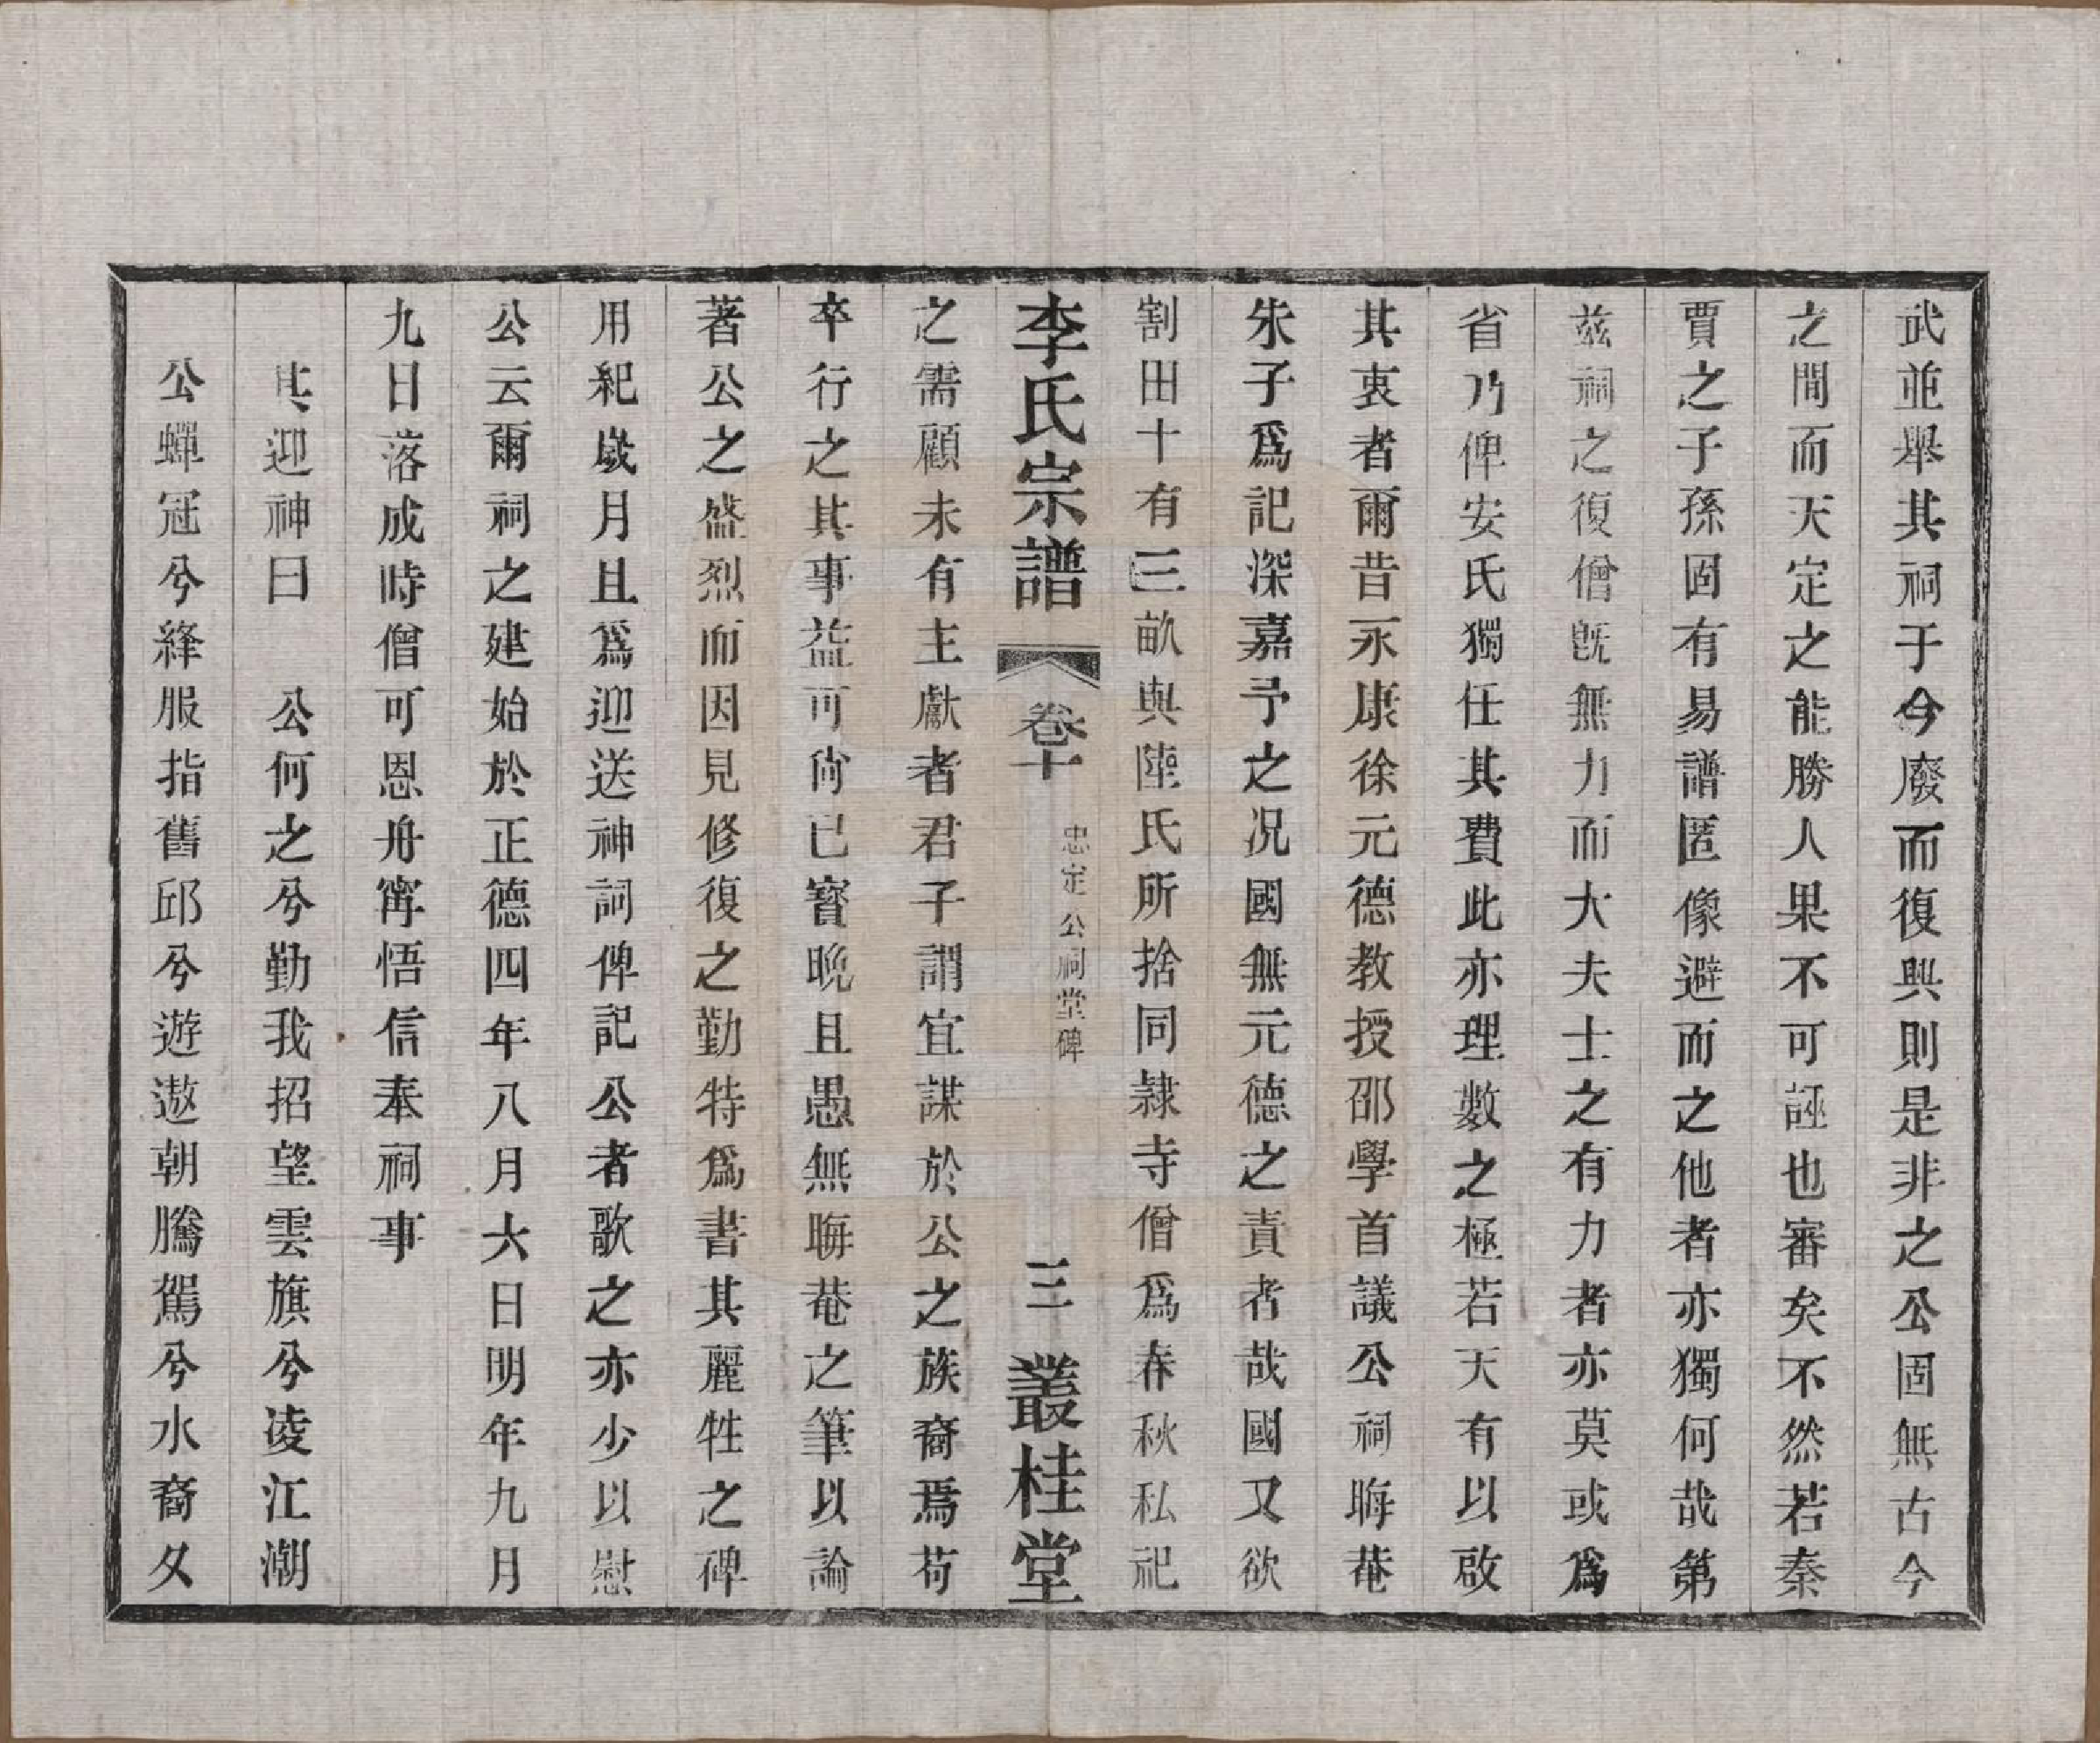 武並舉其祠于今廢而復興則是非之公固無古今
之間而天定之能勝人果不可誣也審矣不然若秦
賈之子孫固有易譜匿像避而之他者亦獨何哉第
茲祠之復僧旣無力而大夫士之有力者亦莫或爲
省乃俾安氏獨任其費此亦理數之極若天有以啟
其衷者爾昔永康徐元德教授邵學首議公祠晦菴
朱子爲記深嘉予之况國無元德之責者哉國又欲
割田十有三畝與陸氏所捨同隸寺僧爲春秋私祀
李氏宗譜 卷十 忠定公祠堂碑 三 叢桂堂
之需顧未有主獻者君子謂宜謀於公之族裔焉苟
卒行之其事益可尙已寳晚且愚無晦菴之筆以論
著公之盛烈而因見修復之勤特爲書其麗牲之碑
用紀歲月且爲迎送神詞俾記公者歌之亦少以慰
公云爾祠之建始於正德四年八月六日明年九月
九日落成時僧可恩舟寗悟信奉祠事
其迎神曰 公何之兮勤我招望雲旗兮凌江潮
公蟬冠兮絳服指舊邱兮遊遨朝騰駕兮水裔夕